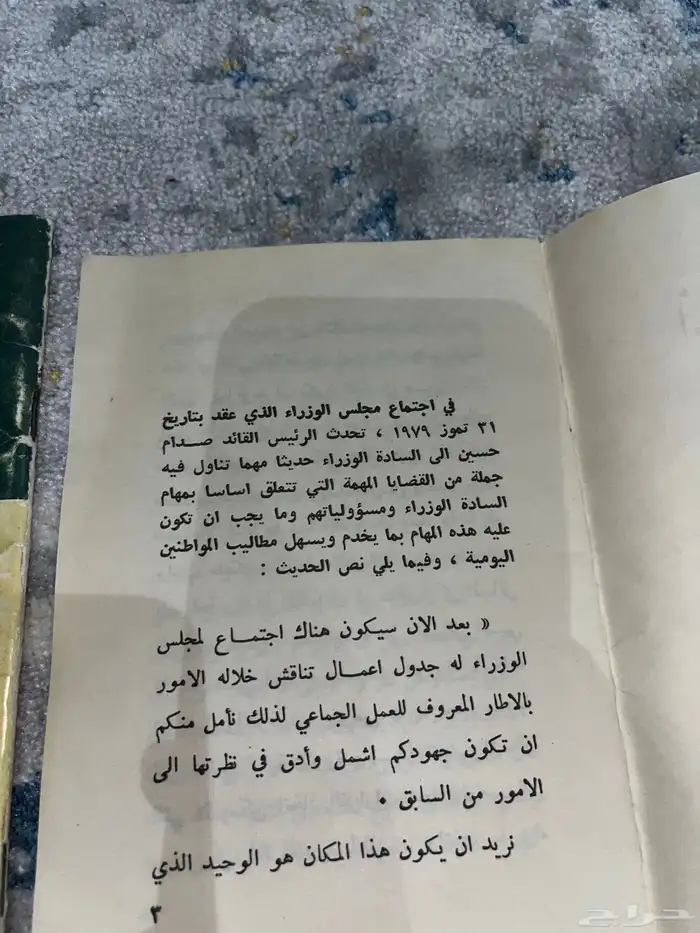 في اجتماع مجلس الوزراء الذي عقد بتاريخ
٣١ تموز ١٩٧٩ ، تحدث الرئيس القائد صـدام
حسين الى السادة الوزراء حديثا مهما تناول فيه
جملة من القضايا المهمة التي تتعلق اساسا بمهام
السادة الوزراء ومسؤولياتهم وما يجب ان تكون
عليه هذه المهام بما يخدم ويسهل مطاليب المواطنين
اليومية ، وفيما يلي نص الحديث :
« بعد الان سيكون هناك اجتمـاع لمجلس
الوزراء له جدول اعمـال تناقش خلاله الامور
بالاطار المعروف للعمل الجماعي لذلك نأمل منكم
ان تكون جهودكم اشمل وأدق في نظرتها الى
الامور من السابق .
نريد ان يكون هذا المكان هو الوحيد الذي
٣
حراج